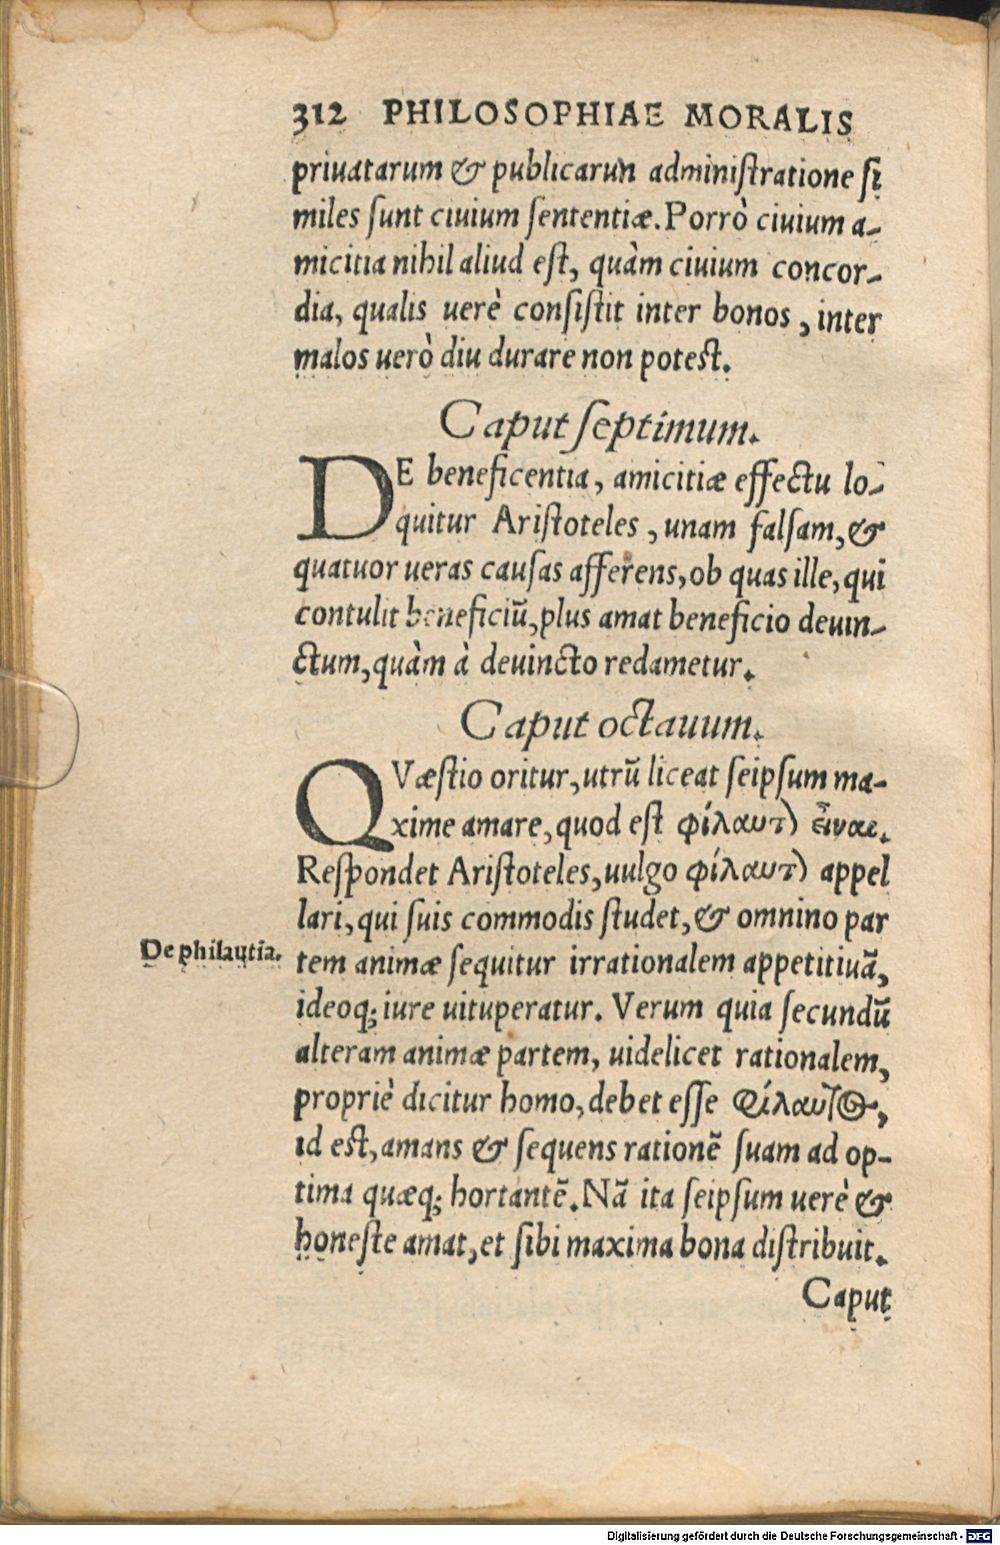 312 PHILOSOPHIAE MORALIS
priuatarum & publicarun administratione si
miles sunt ciuium sententiæ. Porrò ciuium a-
micitia nihil aliud est, quàm ciuium concor-
dia, qualis uerè consistit inter bonos, inter
malos uerò diu durare non potest.
Caput septimum.
DE beneficentia, amicitiæ effectu lo-
quitur Aristoteles, unam falsam, &
quatuor ueras causas afferens, ob quas ille, qui
contulit beneficiũ, plus amat beneficio deuin-
ctum, quàm à deuincto redametur.
Caput octauum.
QVæstio oritur, utrũ liceat seipsum ma-
xime amare, quod est φίλαυτον εἶναι.
Respondet Aristoteles, uulgo φίλαυτον appel
lari, qui suis commodis studet, & omnino par
De philautia.
tem animæ sequitur irrationalem appetitiuã,
ideoq; iure uituperatur. Verum quia secundũ
alteram animæ partem, uidelicet rationalem,
propriè dicitur homo, debet esse φίλαυτος,
id est, amans & sequens rationẽ suam ad op-
tima quæq; hortantẽ. Nã ita seipsum uerè &
honeste amat, et sibi maxima bona distribuit.
Caput
Digitalisierung gefördert durch die Deutsche Forschungsgemeinschaft - DFG